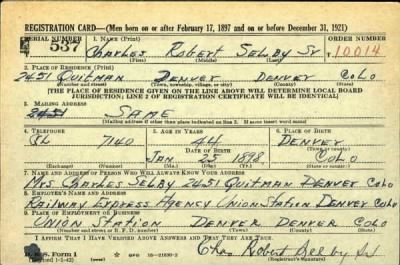 REGISTRATION CARD—(Men born on or after February 17, 1897 and on or before December 31, 1921)
SERIAL NUMBER 1. NAME (Print) ORDER NUMBER
537 CHARLES ROBERT SELBY Sr 10014
(First) (Middle) (Last)
2. PLACE OF RESIDENCE (Print)
2451 QUITMAN DENVER DENVER COLO
(Number and street) (Town, township, village, or city) (County) (State)
[THE PLACE OF RESIDENCE GIVEN ON THE LINE ABOVE WILL DETERMINE LOCAL BOARD
JURISDICTION; LINE 2 OF REGISTRATION CERTIFICATE WILL BE IDENTICAL]
3. MAILING ADDRESS
2451 SAME
[Mailing address if other than place indicated on line 2. If same insert word same]
4. TELEPHONE 5. AGE IN YEARS 6. PLACE OF BIRTH
GL 7140 44 DENVER
DATE OF BIRTH (Town or county)
JAN 25 1898 COLO
(Exchange) (Number) (Mo.) (Day) (Yr.) (State or country)
7. NAME AND ADDRESS OF PERSON WHO WILL ALWAYS KNOW YOUR ADDRESS
MRS CHARLES SELBY 2451 QUITMAN DENVER COLO
8. EMPLOYER'S NAME AND ADDRESS
RAILWAY EXPRESS AGENCY UNION STATION DENVER COLO
9. PLACE OF EMPLOYMENT OR BUSINESS
UNION STATION DENVER DENVER COLO
(Number and street or R. F. D. number) (Town) (County) (State)
I AFFIRM THAT I HAVE VERIFIED ABOVE ANSWERS AND THAT THEY ARE TRUE.
D. S. S. Form 1
(Revised 1-1-42) GPO 16-21630-2 Chas Robert Selby Sr
(Registrant's signature)